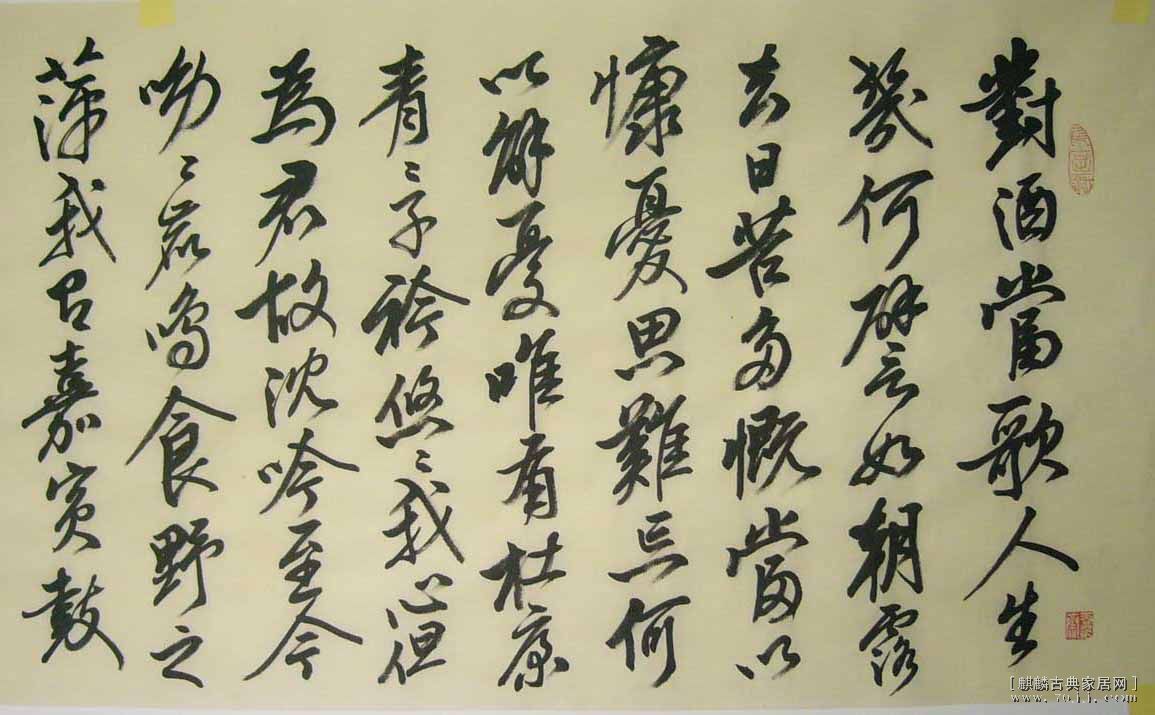 對酒當歌人生
幾何譬如朝露
去日苦多慨當以
慷憂思難忘何
以解憂唯有杜康
青〻子衿悠〻我心但
為君故沈吟至今
呦〻鹿鳴食野之
萍我嘉賓鼓
[麒麟古典家居网]